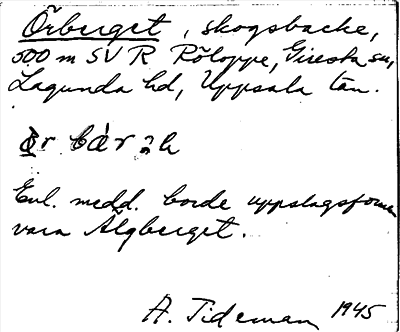 Örberget, skogsbacke,
500 m SV R Röloppe, Giresta sn,
Lagunda hd, Uppsala län.
Enl. medd. borde uppslagsformen
vara Älgberget.
A. Tideman 1945